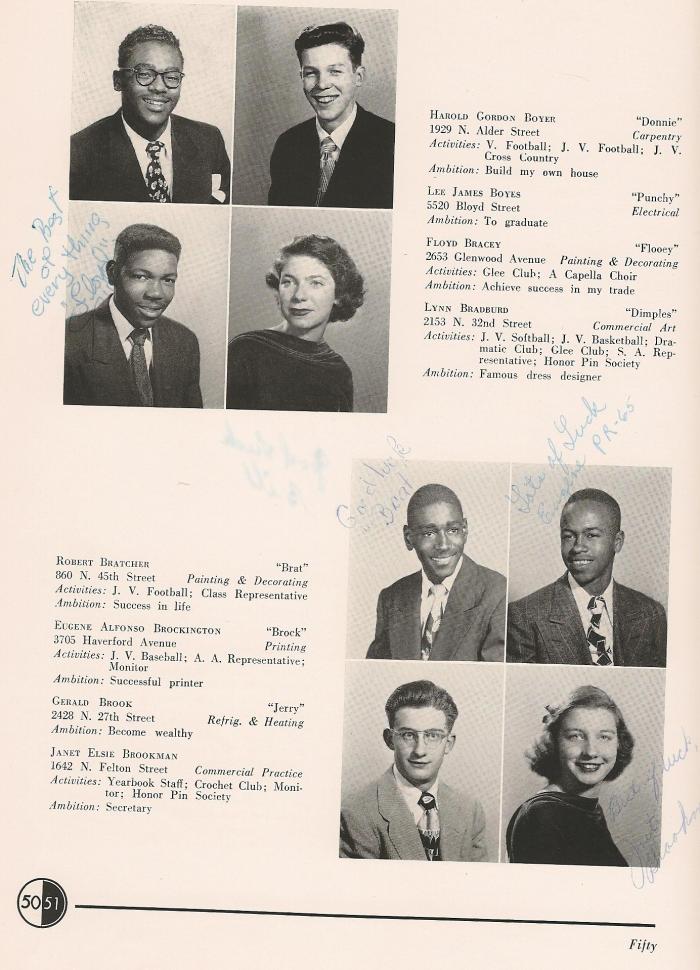 HAROLD GORDON BOYER "Donnie"
1929 N. Alder Street Carpentry
Activities: V. Football; J. V. Football; J. V.
Cross Country
Ambition: Build my own house
LEE JAMES BOYES "Punchy"
5520 Bloyd Street Electrical
Ambition: To graduate
FLOYD BRACEY "Flooey"
2653 Glenwood Avenue Painting & Decorating
Activities: Glee Club; A Capella Choir
Ambition: Achieve success in my trade
LYNN BRADBURD "Dimples"
2153 N. 32nd Street Commercial Art
Activities: J. V. Softball; J. V. Basketball; Dra-
matic Club; Glee Club; S. A. Rep-
resentative; Honor Pin Society
Ambition: Famous dress designer
The Best
of
every thing
Good luck
Lots of Luck
Eugene PR-65
ROBERT BRATCHER "Brat"
860 N. 45th Street Painting & Decorating
Activities: J. V. Football; Class Representative
Ambition: Success in life
EUGENE ALFONSO BROCKINGTON "Brock"
3705 Haverford Avenue Printing
Activities: J. V. Baseball; A. A. Representative;
Monitor
Ambition: Successful printer
GERALD BROOK "Jerry"
2428 N. 27th Street Refrig. & Heating
Ambition: Become wealthy
JANET ELSIE BROOKMAN
1642 N. Felton Street Commercial Practice
Activities: Yearbook Staff; Crochet Club; Moni-
tor; Honor Pin Society
Ambition: Secretary
of luck,
50 51
Fifty